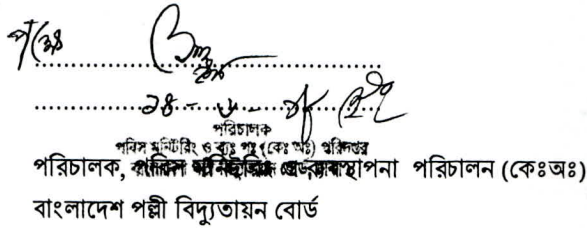 পক্ষে
পরিচালক
পবিস মনিটরিং ও ব্যঃ পঃ (কেঃ অঃ) পরিদপ্তর
পরিচালক, পবিস মনিটরিং ও ব্যবস্থাপনা পরিচালন (কেঃঅঃ)
বাংলাদেশ পল্লী বিদ্যুতায়ন বোর্ড